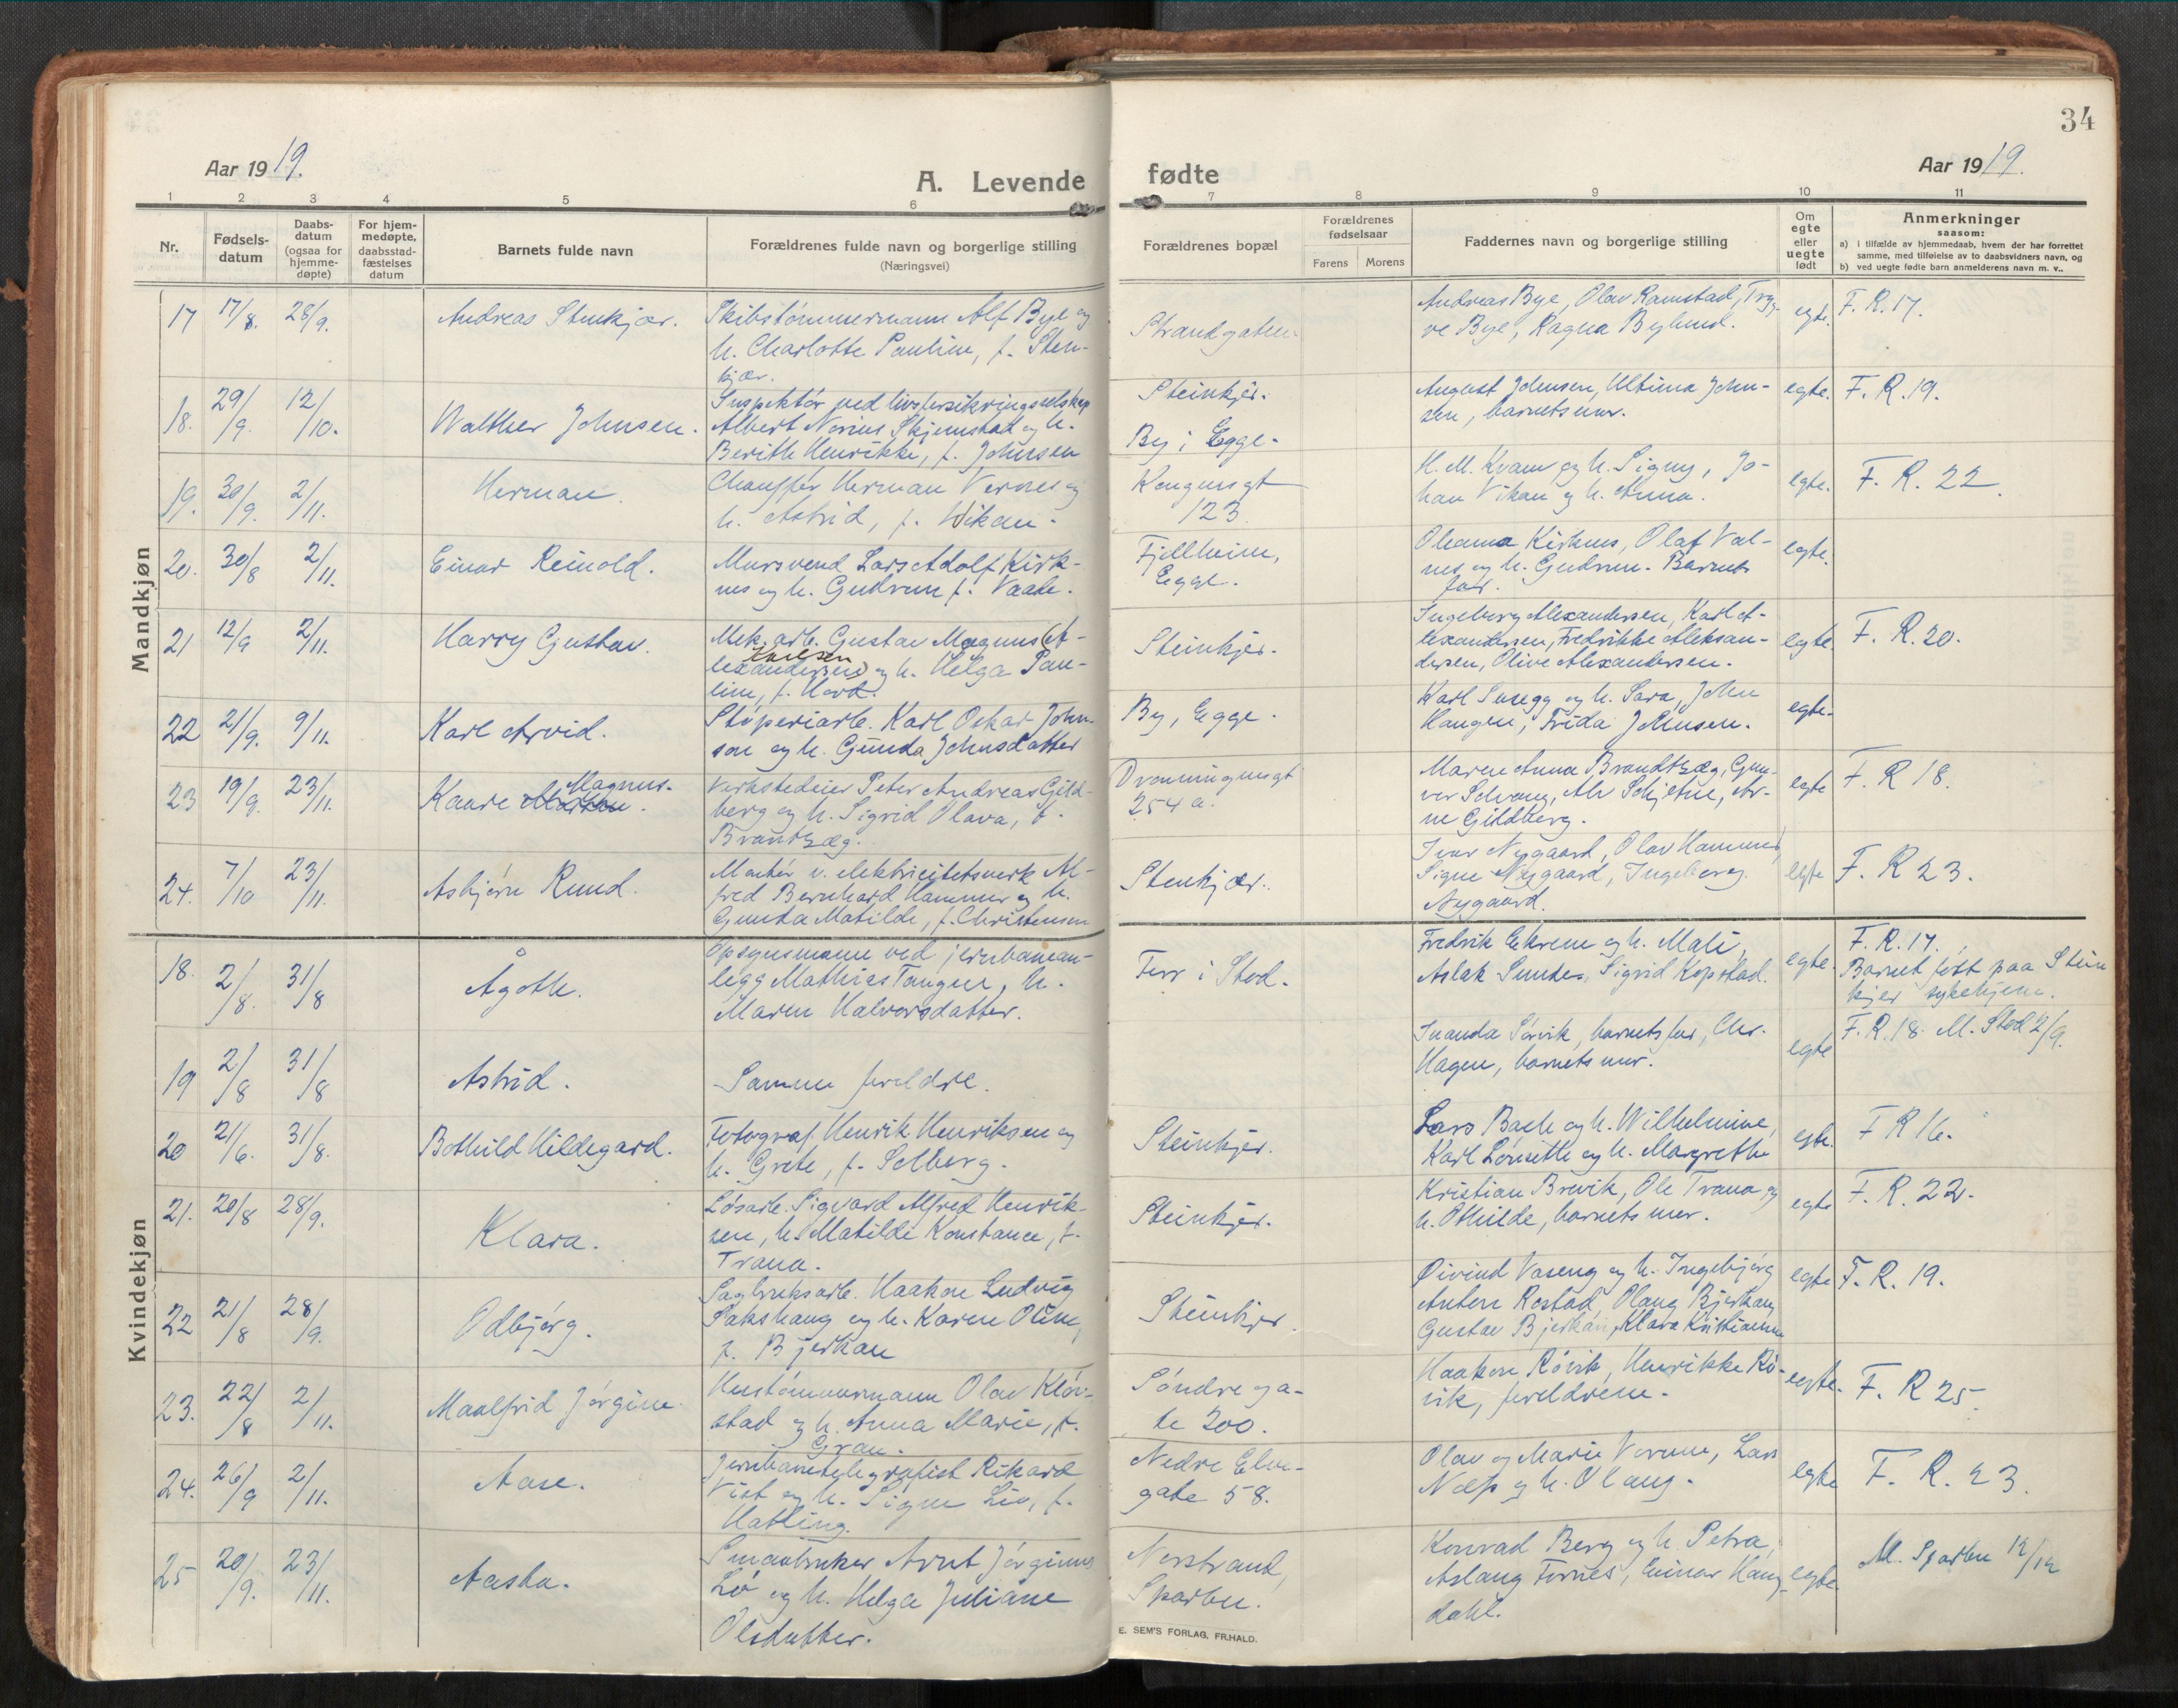 34
Aar 1919.
A. Levende
fødte
Aar 1919.
1 2 3 4 5 6 7 8 9 10 11
Nr.
Fødsels-
datum
Daabs-
datum
(ogsaa for
hjemme-
døpte)
For hjem-
medøpte,
daabsstad-
fæstelses
datum
Barnets fulde navn
Forældrenes fulde navn og borgerlige stilling
(Næringsvei)
Forældrenes bopæl
Forældrenes
fødselsaar
Farens Morens
Faddernes navn og borgerlige stilling
Om
egte
eller
uegte
født
Anmerkninger
saasom:
a) i tilfælde av hjemmedaab, hvem der har forrettet
samme, med tilføielse av to daabsvidners navn, og
b) ved uegte fødte barn anmelderens navn m. v..
Mandkjøn
17 17/8. 28/9. Andreas Stenkjær.
Skibstømmermann Alf Bye og
h. Charlotte Pauline, f. Sten-
kjær.
Strandgaten.
Andreas Bye, Olav Ramstad, Tryg-
ve Bye, Ragna Bylund.
egte. F. R. 17.
18. 29/9. 12/10. Walther Johnsen.
Inspektør ved livsforsikringsselskap
Albert Norius Skjemstad og h.
Berith Henrikke, f. Johnsen
Steinkjer.
By i Egge.
August Johnsen, Ultima John-
sen, barnets mor.
egte. F. R. 19.
19. 30/9. 2/11. Herman.
Chauffør Herman Vernes og
h. Astrid, f. Wikan.
Kongensgt
123
H. M. Kvam og h. Signy, Jo-
han Vikan og h. Anna.
egte. F. R. 22.
20. 30/8 2/11. Einar Reinold.
Mursvend Lars Adolf Kirk-
nes og h. Gudrun f. Vaade.
Fjellheim,
Egge.
Oleana Kirknes, Olaf Val-
nes og h. Gudrun. Barnets
far.
egte.
21 12/9 2/11. Harry Gustav.
Mek. arb. Gustav Magnus (A-
lexandersen) Karlsen og h. Helga Pau-
line, f. Hovd.
Steinkjer.
Ingeborg Alexandersen, Karl A-
lexandersen, Fredrikke Aleksan-
dersen, Olive Alexandersen.
egte. F. R. 20.
22 21/9. 9/11. Karl Arvid.
Støperiarb. Karl Oskar John-
son og h. Gunda Johnsdatter
By, Egge.
Karl Snregg og h. Sara, John
Haugen, Frida Johnsen.
egte.
23 19/9. 23/11. Kaare Magnus.
Verkstedeier Peter Andreas Gild-
berg og h. Sigrid Olava, f.
Brandtzæg.
Dronningensgt
254 a.
Maren Anna Brandtzæg, Gun-
vor Selvaag, Alv Schjetne, Ar-
ne Gildberg.
egte F. R 18.
24. 7/10 23/11. Asbjørn Rund.
Montør v. elektricitetsverk Al-
fred Bernhard Hammer og h.
Gunda Matilde, f. Christensen
Stenkjær.
Ivar Nygaard, Olav Hammer,
Signe Nygaard, Ingeborg
Nygaard.
egte F. R 23.
Kvindekjøn
18. 2/8. 31/8 Ågoth.
Opsynsmann ved jernbanean-
legg Mathias Tangen, h.
Maren Halvorsdatter.
Five i Stod.
Fredrik Ekrem og h. Mali,
Aslak Sunde, Sigrid Kopstad.
egte. F. R. 17.
Barnet født paa Stein
kjer sykehjem.
19 2/8 31/8 Astrid.
Samme foreldre.
Inanda Sørvik, barnets far, Chr.
Hagen, barnets mor.
egte F. R. 18. M. Stod 2/9.
20 21/6. 31/8. Bothild Hildegard.
Fotograf Henrik Henriksen og
h. Grete, f. Selberg.
Steinkjer.
Lars Bach og h. Wilhelmine,
Karl Lønseth og h. Margrethe
egte. F R 16.
21. 20/8 28/9. Klara.
Løsarb. Sigvard Alfred Henrik-
sen, h. Matilde Konstance, f.
Trana.
Steinkjer.
Kristian Brevik, Ole Trana og
h. Othilde, barnets mor.
egte F. R. 22.
22 21/8 28/9. Odbjørg.
Sagbruksarb. Haakon Ludvig
Sakshaug og h. Karen Oline,
f. Bjerkan
Steinkjer.
Øivind Vaseng og h. Ingebjørg
Anbern Rostad, Olaug Bjerkan,
Gustav Bjerkan, Klara Kristiansen
egte F. R. 19.
23. 22/8 2/11. Maalfrid Jørgine.
Hustømmermann Olav Kløv-
stad og h. Anna Marie, f.
Gran.
Søndre ga-
te 200.
Haakon Rövik, Henrikke Rö-
vik, foreldrene.
egte. F. R 25.
24. 26/9 2/11. Aase.
Jernbanetelegrafist Rikard
Vist og h. Signe Liv, f.
Hatling.
Nedre Elve-
gate 58.
Olav og Marie Vorum, Lars
Næss og h. Olaug.
egte F. R. 23.
25 20/9. 23/11. Aasta.
Smaabruker Arnt Jørginus
Lø og h. Helga Juliane
Olsdatter.
Norstrand,
Sparbu.
Konrad Berg og h. Petra,
Aslaug Fornes, Einar Haug-
dahl.
egte. M. Sparbu 12/12
E. SEM'S FORLAG, FR.HALD.